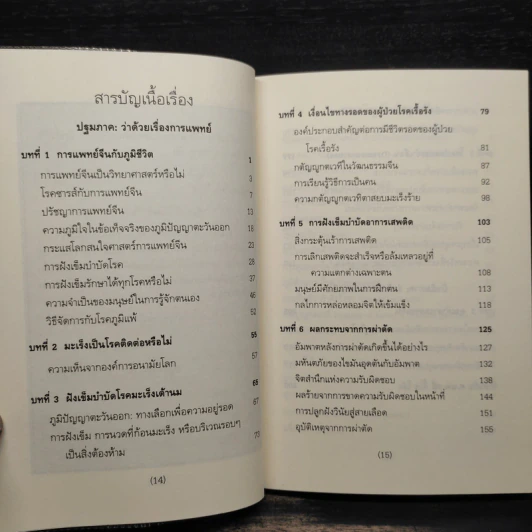 สารบัญเนื้อเรื่อง
ปฐมภาค: ว่าด้วยเรื่องการแพทย์
บทที่ 1 การแพทย์จีนกับภูมิชีวิต 1
การแพทย์จีนเป็นวิทยาศาสตร์หรือไม่ 3
โรคซารส์กับการแพทย์จีน 7
ปรัชญาการแพทย์จีน 13
ความภูมิใจในข้อเท็จจริงของภูมิปัญญาตะวันออก 18
กระแสโลกสนใจศาสตร์การแพทย์จีน 23
การฝังเข็มบำบัดโรค 28
การฝังเข็มรักษาได้ทุกโรคหรือไม่ 37
ความจำเป็นของมนุษย์ในการรู้จักตนเอง 46
วิธีจัดการกับโรคภูมิแพ้ 52
บทที่ 2 มะเร็งเป็นโรคติดต่อหรือไม่ 55
ความเห็นจากองค์การอนามัยโลก 57
บทที่ 3 ฝังเข็มบำบัดโรคมะเร็งเต้านม 65
ภูมิปัญญาตะวันออก: ทางเลือกเพื่อความอยู่รอด 67
การฝังเข็ม การนวดที่ก้อนมะเร็ง หรือบริเวณรอบๆ
เป็นสิ่งต้องห้าม
(14)
บทที่ 4 เงื่อนไขทางรอดของผู้ป่วยโรคเรื้อรัง 79
องค์ประกอบสำคัญต่อการมีชีวิตรอดของผู้ป่วย
โรคเรื้อรัง 81
กตัญญูกตเวทีในวัฒนธรรมจีน 87
การเรียนรู้วิธีการเป็นคน 92
ความกตัญญูกตเวทีตาสยบมะเร็งร้าย 98
บทที่ 5 การฝังเข็มบำบัดอาการเสพติด 103
สิ่งกระตุ้นเร้าการเสพติด 105
การเลิกเสพติดจะสำเร็จหรือล้มเหลวอยู่ที่
ความแตกต่างเฉพาะตน 108
มนุษย์มีศักยภาพในการฝึกตน 113
กลไกการหล่อหลอมจิตให้เข้มแข็ง 118
บทที่ 6 ผลกระทบจากการผ่าตัด 125
อัมพาตหลังการผ่าตัดเกิดขึ้นได้อย่างไร 127
มหันตภัยของไขมันอุดตันกับอัมพาต 132
จิตสำนึกแห่งความรับผิดชอบ 138
ผลร้ายจากการขาดความรับผิดชอบในหน้าที่ 144
การปลูกฝังวินัยสู่สายเลือด 151
อุบัติเหตุจากการผ่าตัด 155
(15)